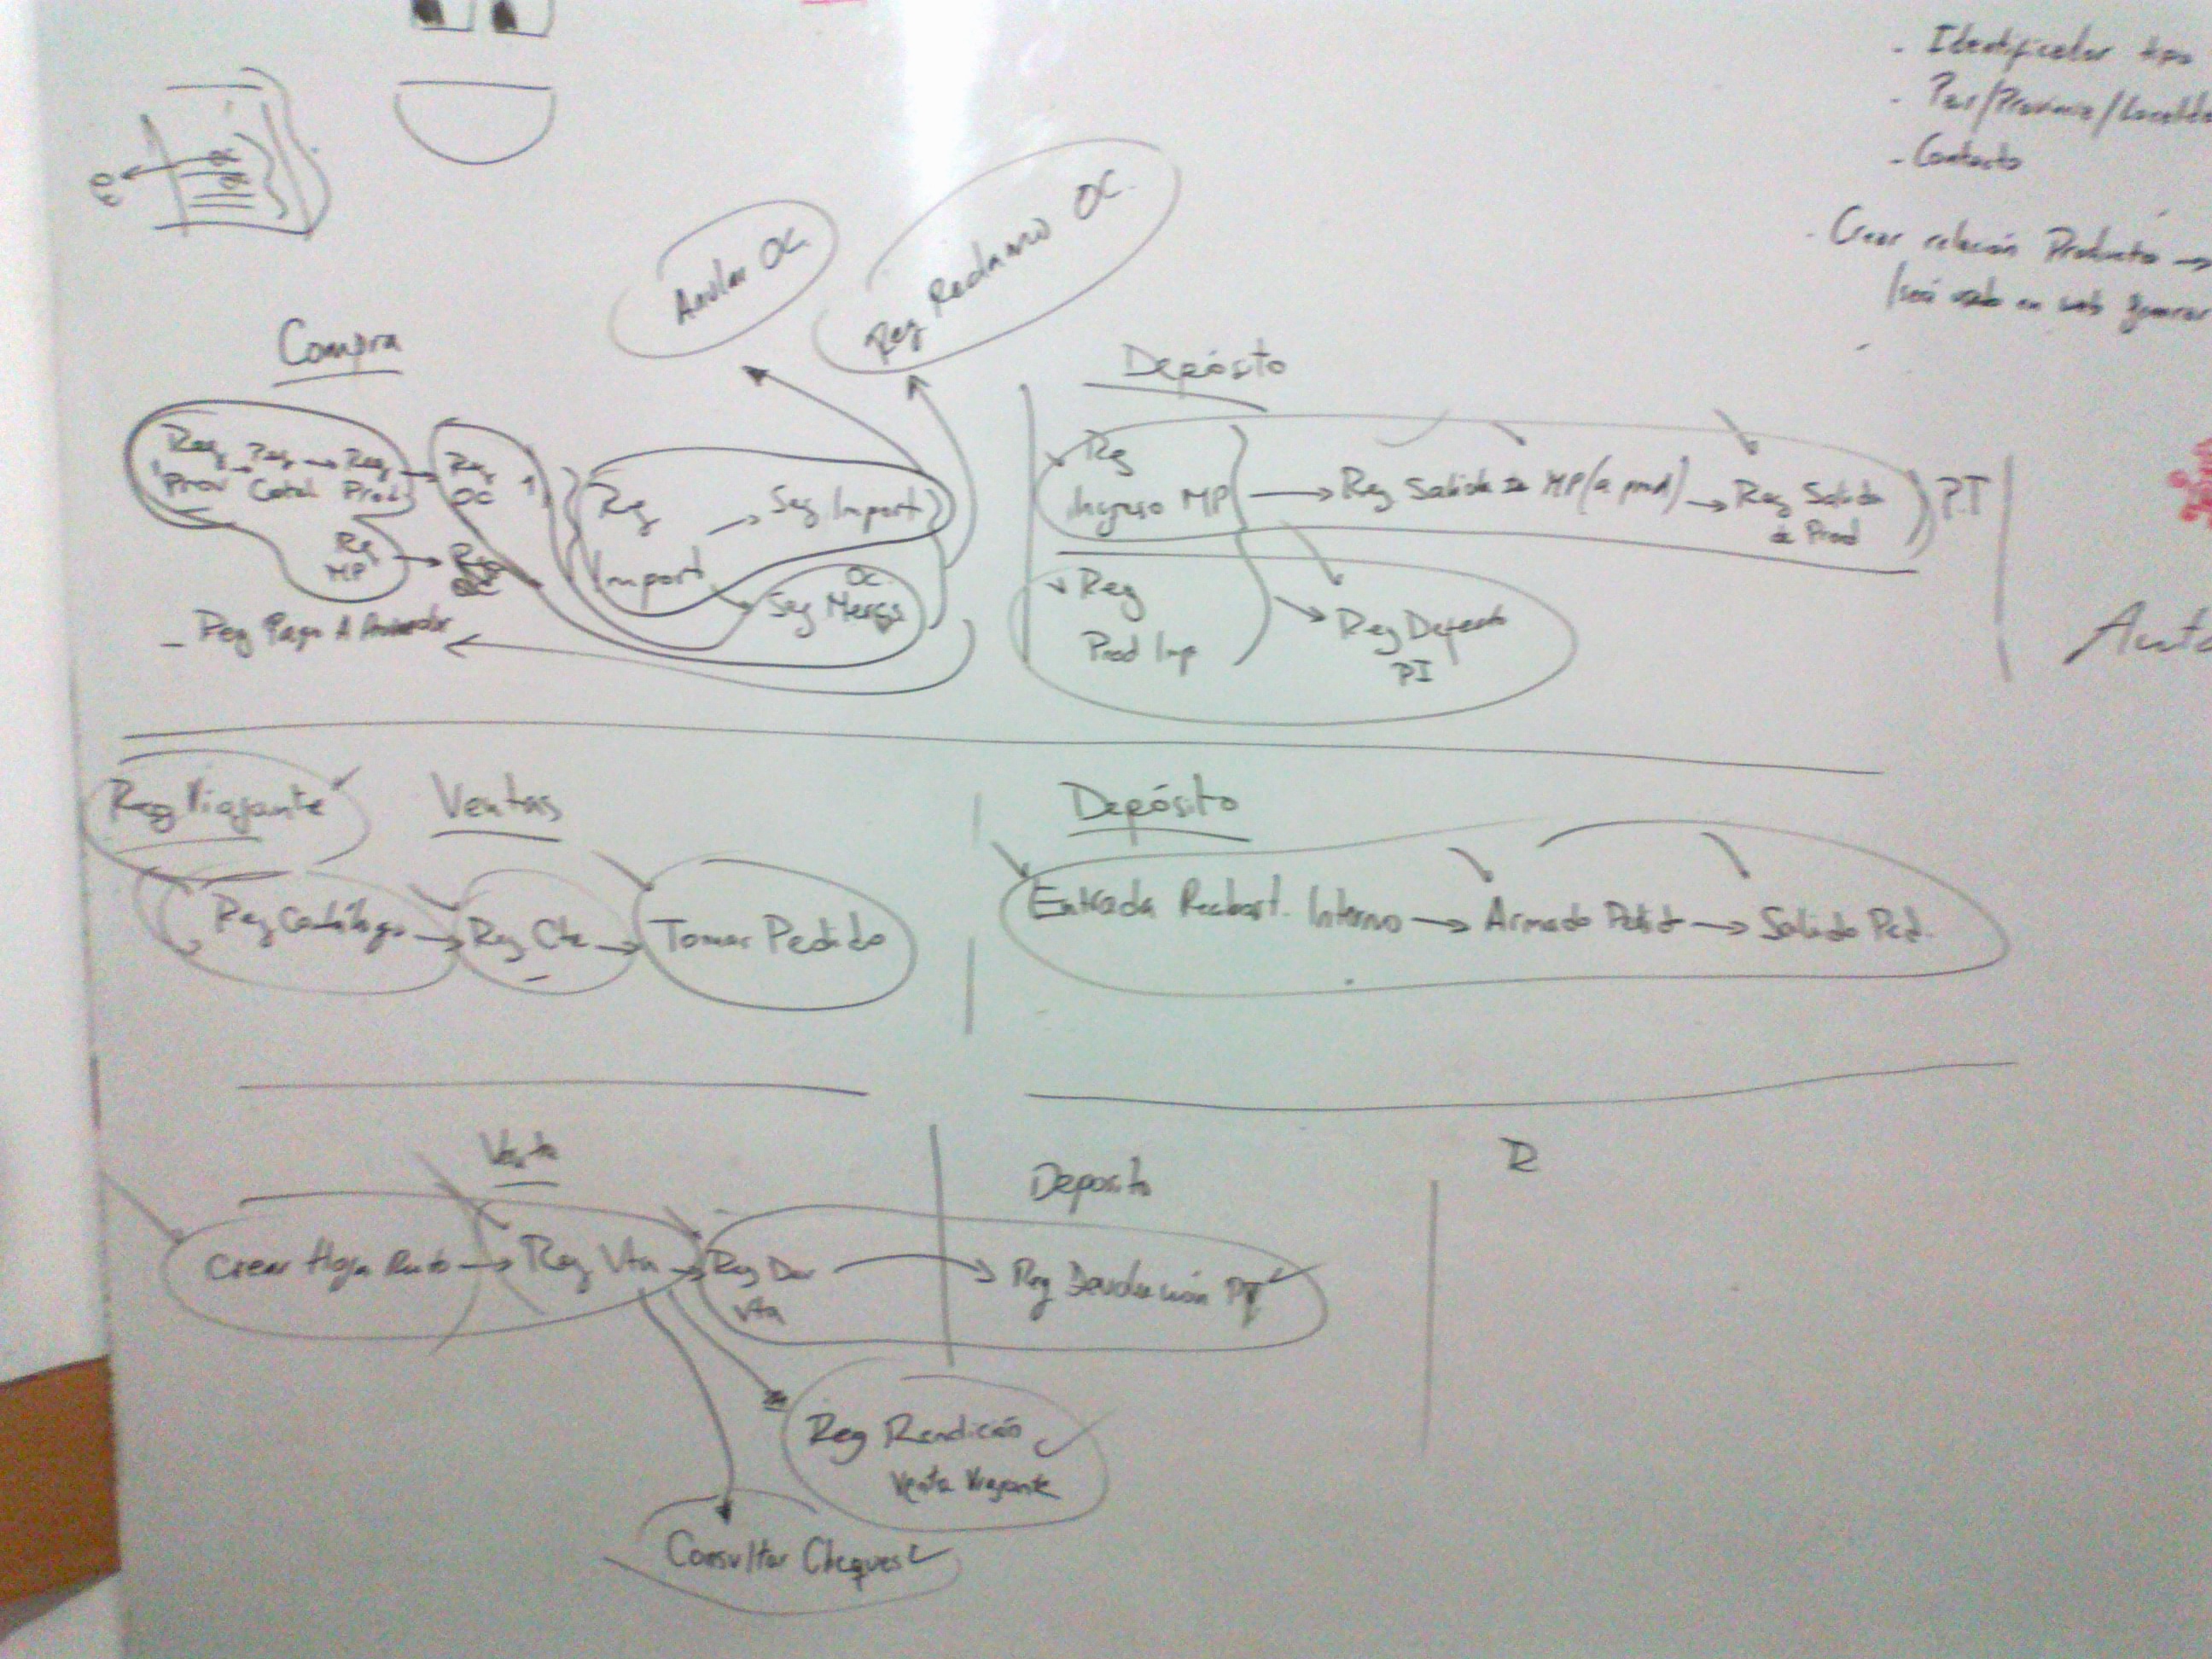 - Identificador tipo
- Contacto
- Crear relación Producto →
en web
Anular OC
Reg Reclamo OC
Compra
Reg Prov → Reg Catal → Reg Prod → Reg OC
Reg MP →
Reg Import → Seg Import
Seg OC
- Reg Pago A
Depósito
Reg Ingreso MP → Reg Salida de MP (a prod) → Reg Salida de Prod
PT
Reg Prod Imp → Reg PI
Reg Viajante
Ventas
Reg Catálogo → Reg Cte → Tomar Pedido
Depósito
Entrada Interno → Armado → Salida Ped.
Venta
Crear Hoja Ruta → Reg Vta → Reg Dev Vta
Deposito
Reg Devolución PT
R
Reg Rendición
Venta Viajante
Consultar Cheques